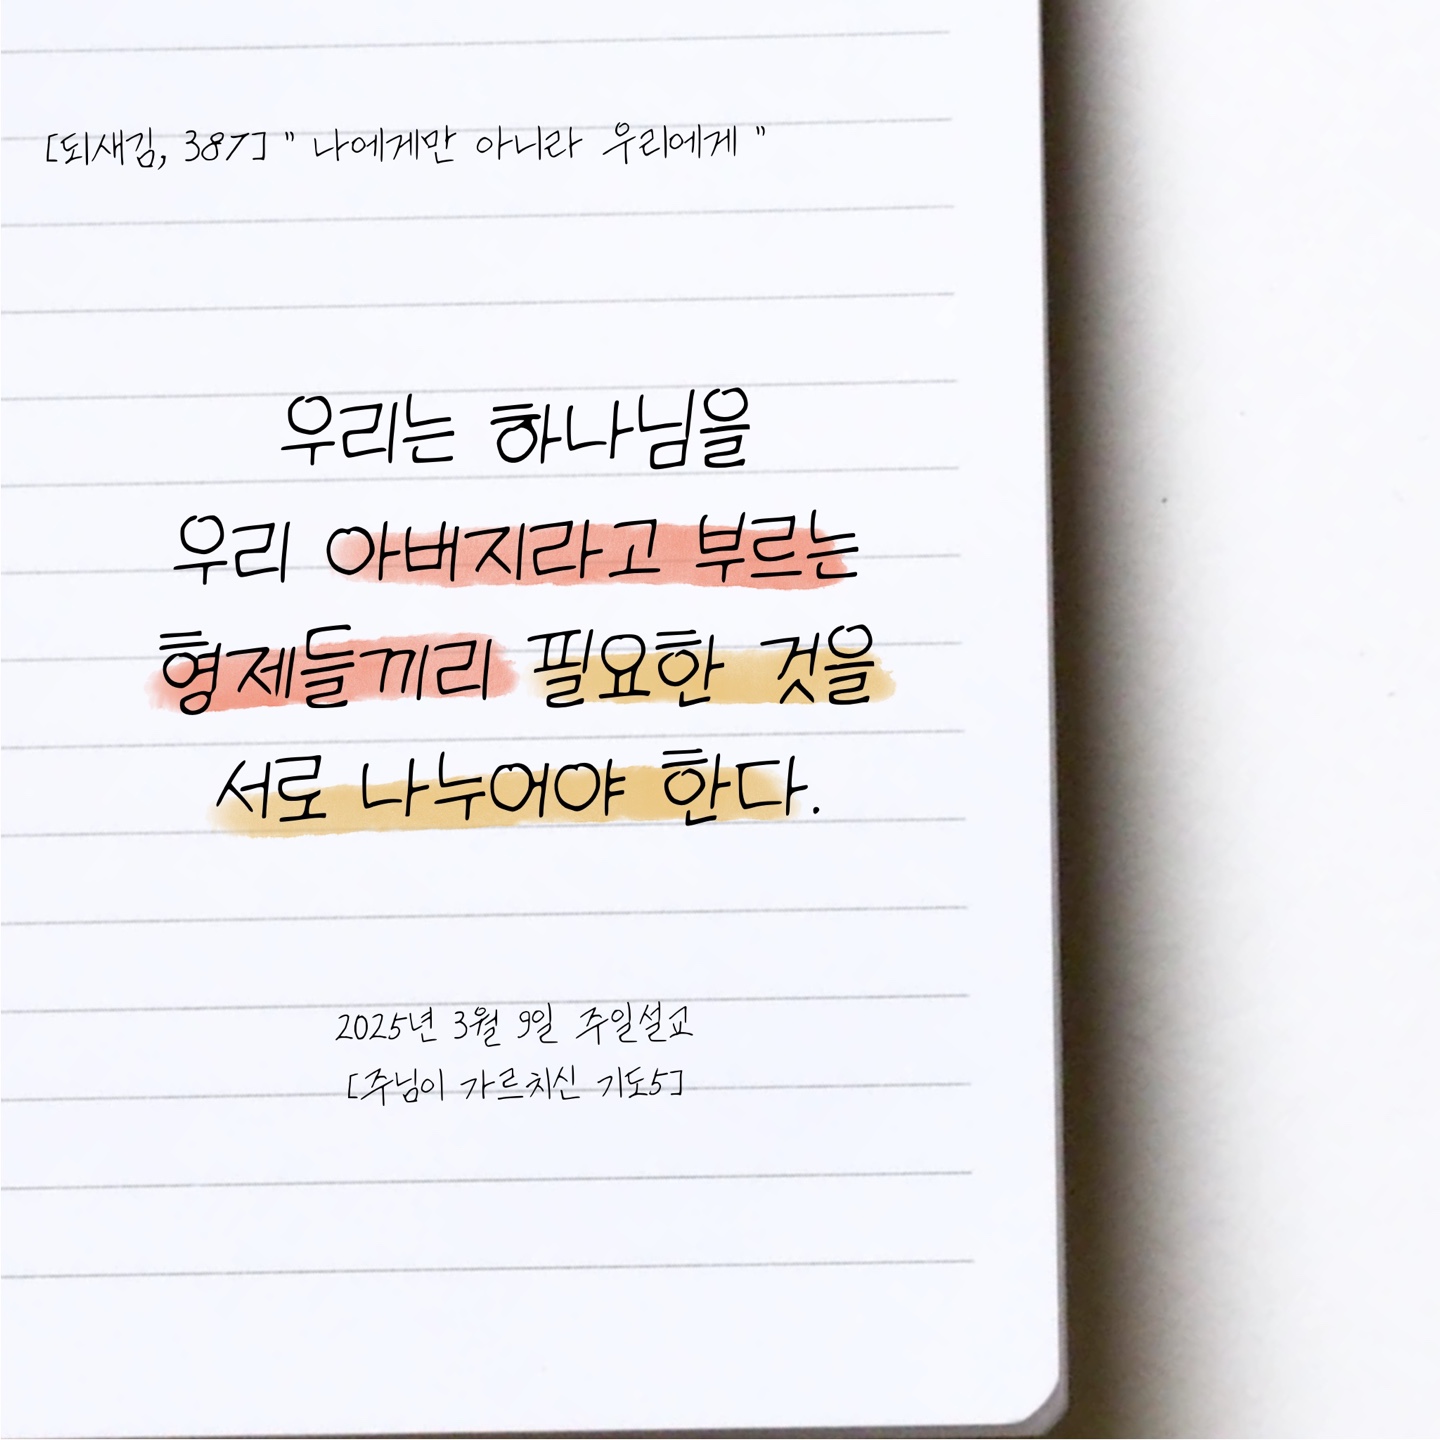 [되새김, 387] " 나에게만 아니라 우리에게 "
우리는 하나님을
우리 아버지라고 부르는
형제들끼리 필요한 것을
서로 나누어야 한다.
2025년 3월 9일 주일설교
[주님이 가르치신 기도5]